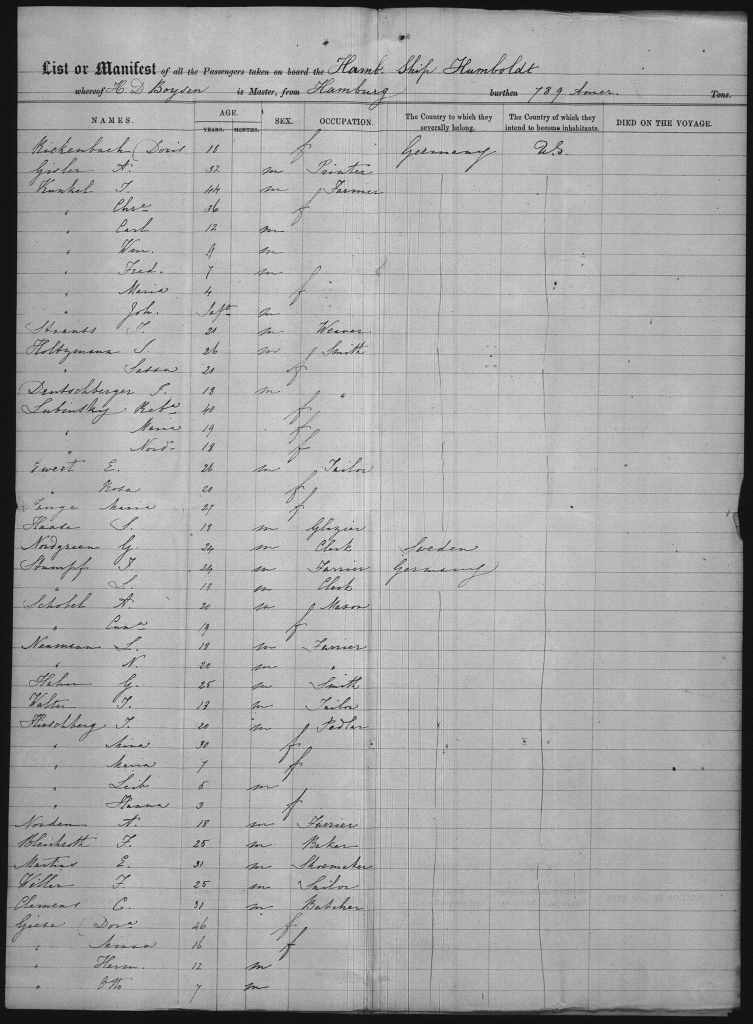 List or Manifest of all the Passengers taken on board the Hamb. Ship Humboldt
whereof H D Boysen is Master, from Hamburg burthen 789 Amer. Tons.
NAMES. AGE. YEARS. MONTHS. SEX. OCCUPATION. The Country to which they severally belong. The Country of which they intend to become inhabitants. DIED ON THE VOYAGE.
Rickenbach Doris 18 f Germany U.S.
Gisler A. 32 m Printer
Kunkel J. 44 m Farmer
" Chre 36 f
" Carl 12 m
" Wm. 9 m
" Fred. 7 m
" Maria 4 f
" Joh. Inft m
J. 20 m Weaver
Holtzmann S. 26 m Smith
" 20 f
Deutschberger J. 18 m "
Lubinsky Reba 40 f
" Marie 19 f
" 18 f
Ewert E. 26 m Tailor
" Rosa 20 f
Lange Maria 27 f
Haase S. 18 m Glazier
Nordgreen G. 24 m Clerk Sweden
Stumpf J. 24 m Farrier Germany
" L. 18 m Clerk
Schobel A. 20 m Mason
" 19 f
Neumann L. 18 m Farrier
" N. 20 m "
Hahn G. 25 m Smith
Walter J. 18 m Tailor
Hirschberg J. 20 m Pedlar
" 30 f
" Maria 7 f
" Leib 5 m
" Hanna 3 f
Norden A. 18 m Farrier
F. 25 m Baker
Martins E. 31 m Shoemaker
Willer F. 25 m Sailor
Clemens C. 31 m Butcher
Giese Dora 46 f
" Anna 16 f
" Herm. 12 m
" Otto 7 m